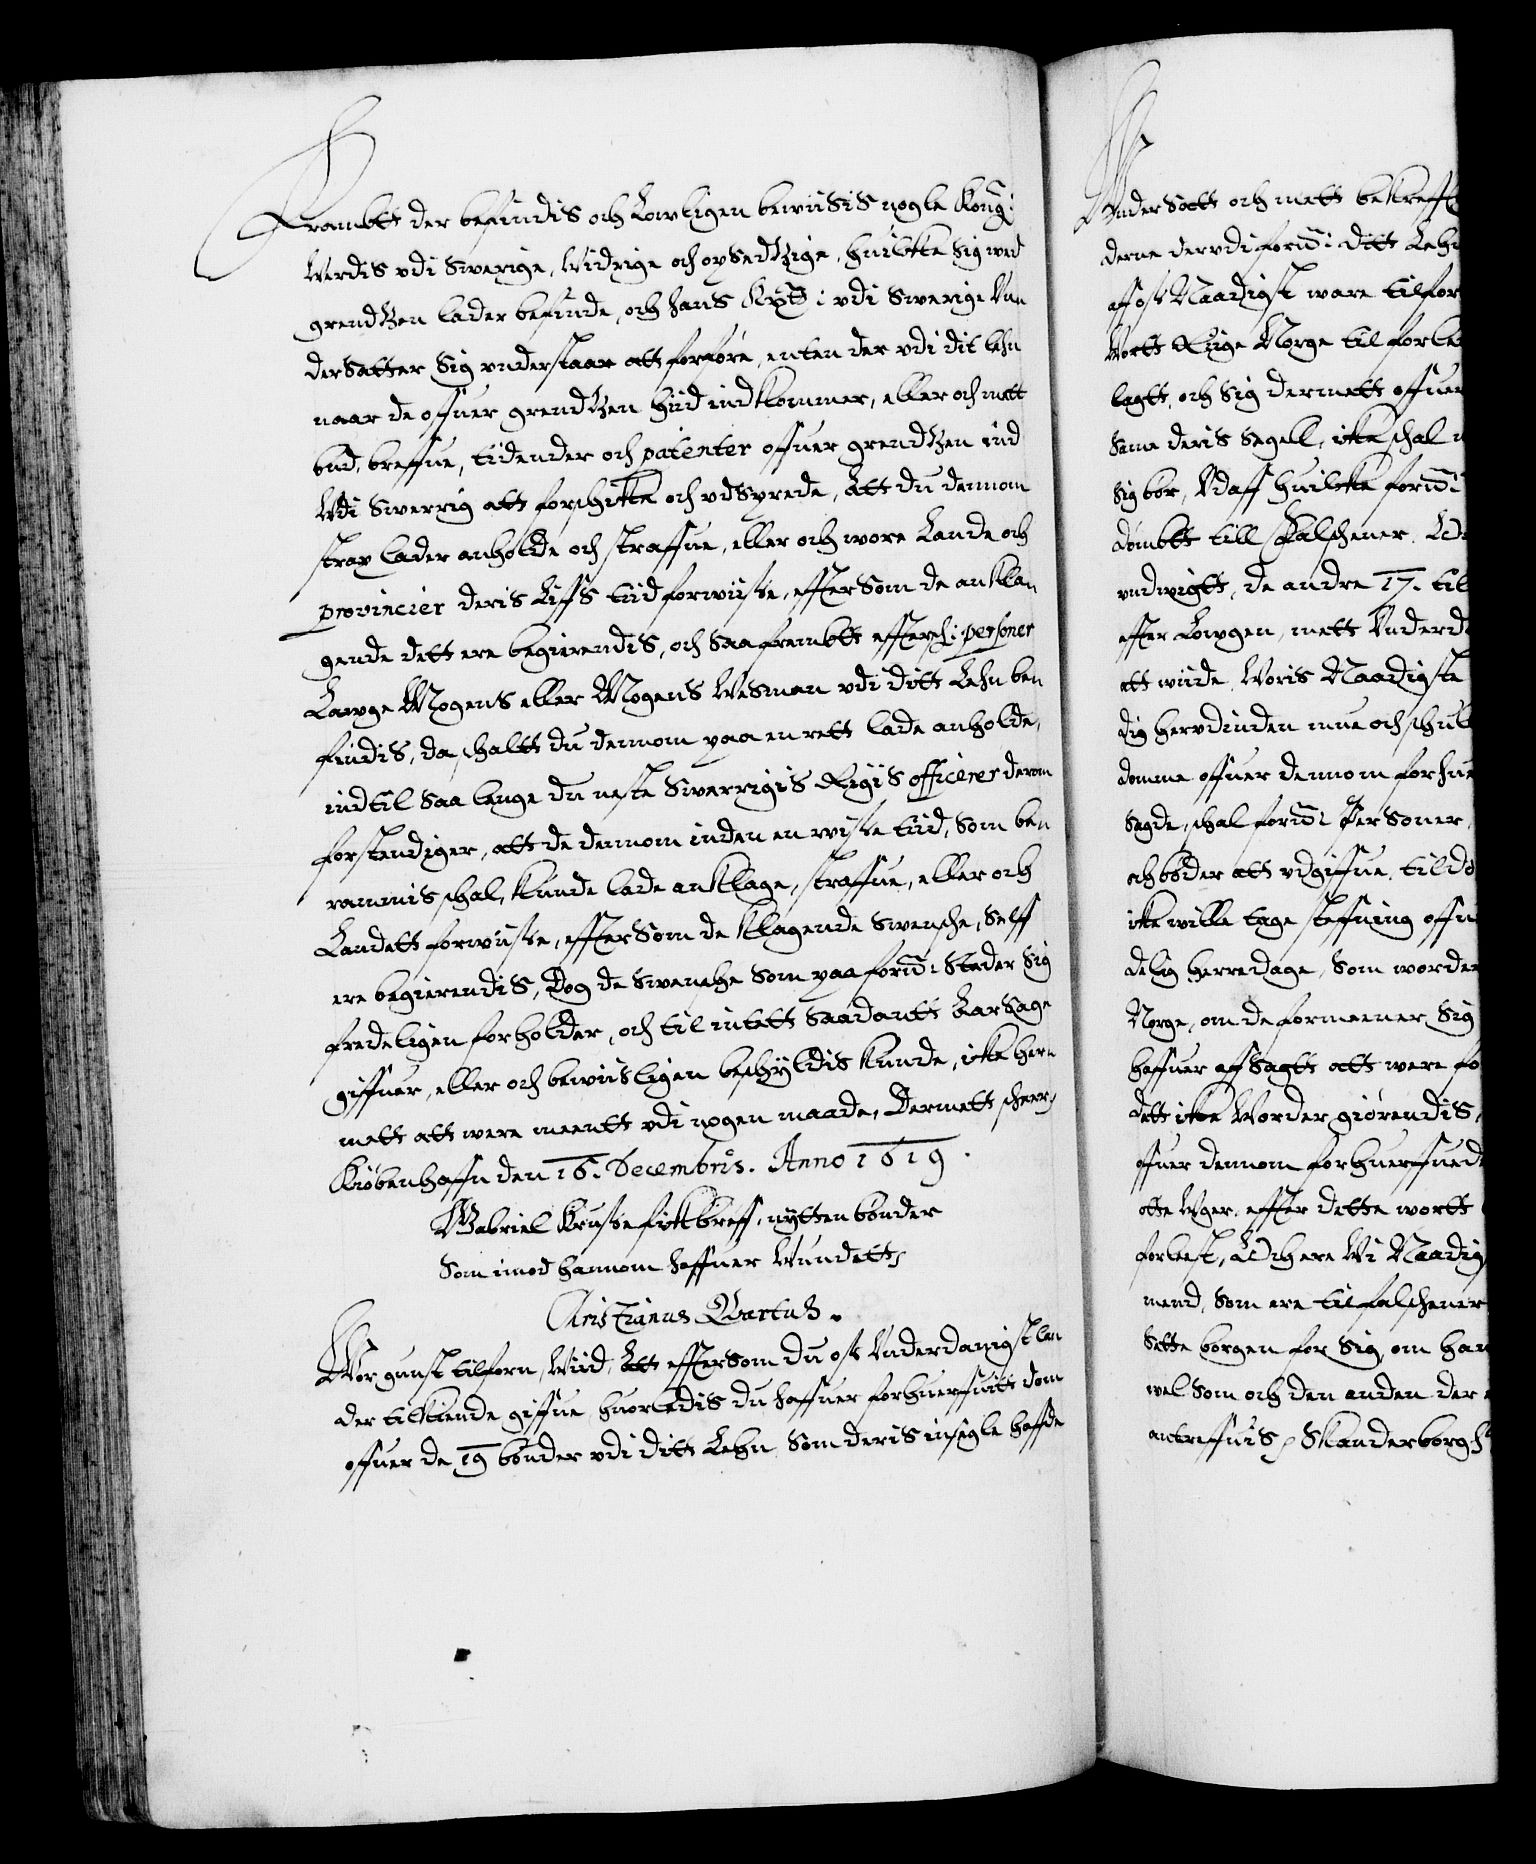 Frambtt der befindis och Lowligen bewiisis nogle Kong:
Werdis vdi Swerige, Widrige och opsedtzige, huilcke sig wed
grendtzen lader befinde, och hans Kong: vdi Swerige Vnn
dersatter Sig vnderstaar att forføre, enten der vdi dit lehn
naar de offuer grendtzen hiid indkommer, eller och mett
bud, breffue, tidender och patenter offuer grendtzen ind
Vdi Swerrig att forschicke och vdsprede, Att du dennom
strax lader anholde och straffue, eller och wore Lande och
provincier deris Liffs tiid forwiisse, effter Som de anklan
gende dett ere begierendis, och Saafrembtt effterschr: personer
Lawge Mogens eller Mogens Wesman vdi ditt Lehn ben
findis, da schaltt du dennom paa en rett lade anholde,
indtil Saa lenge du neste Swerrigis Rigis officerer derom
forstendiger, att de dennom inden en wisse tiid, Som ben
rammis schal, kunde lade anklage, straffue, eller och
Landett forwiisse, effter Som de klagende Swensche, Selff
ere begierendis, Dog de Swensche Som paa forne: Steder Sig
fredeligen forholder, och til intett Saadantt Aarsage
giffuer, eller och bewiisligen beschyldis kunde, icke here
mett att were meentt vdi nogen maade, Dermett scheer,
Kiøbenhaffn den 16. Decembris. Anno 1619.
Gabriel Krusse fick breff, nytten bønder
Som imod hannom haffuer Wundett,
Christianus Qvartus.
Wor gunst tilforn, Wiid, Att effterSom du oss Vnderdanigst lan
der tilkiende giffue huorledis du haffuer forhuerffuitt dom
offuer de 19 bønder vdi ditt Lehn Som deris insegle haffde
Vnder Satt och mett bekrefft
derne der vdi forne: ditt Lehn
aff oss Naadigst ware tilfor
Wortt Riige Norge til forbe
lagtt, och Sig dermett offuer
Same deris Segell, icke schal
Sig bør, Vdaff huilcke forne:
dømbtt till Falschener
vndwigtt, de andre 17. til
effter Lowgen, mett Vnderd
att wiide, Woris Naadigste
dig her vdinden mue och schul
domme offuer dennom forhue
Sagde, schal forne: Personer,
och bøder att vdgiffue, til
icke wille tage steffning offu
delig herredage, Som worder
Norge, om de formeener Sig
haffuer aff Sagtt att were fo
Dett icke Worder giørendis,
offuer dennom forhuerffuede
otte Vger, effter dette wortt
forlest, Och ere Wi Naadig
mend, Som ere til falschener
Sette borgen for Sig, om han
wel Som och den anden der
antreffuis, Skanderborg